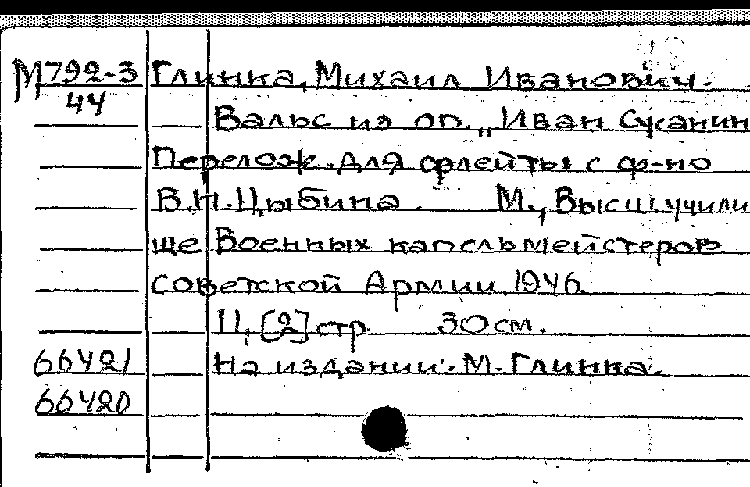 М792-3 Глинка, Михаил Иванович.
44 Вальс из оп. „Иван Сусанин
Перелож. для флейты с ф-но
В.Н. Цыбина. М., Высш. учили
ще Военных капельмейстеров
Советской Армии 1946.
11, [2] стр. 30 см.
66421 На издании: М. Глинка.
66420